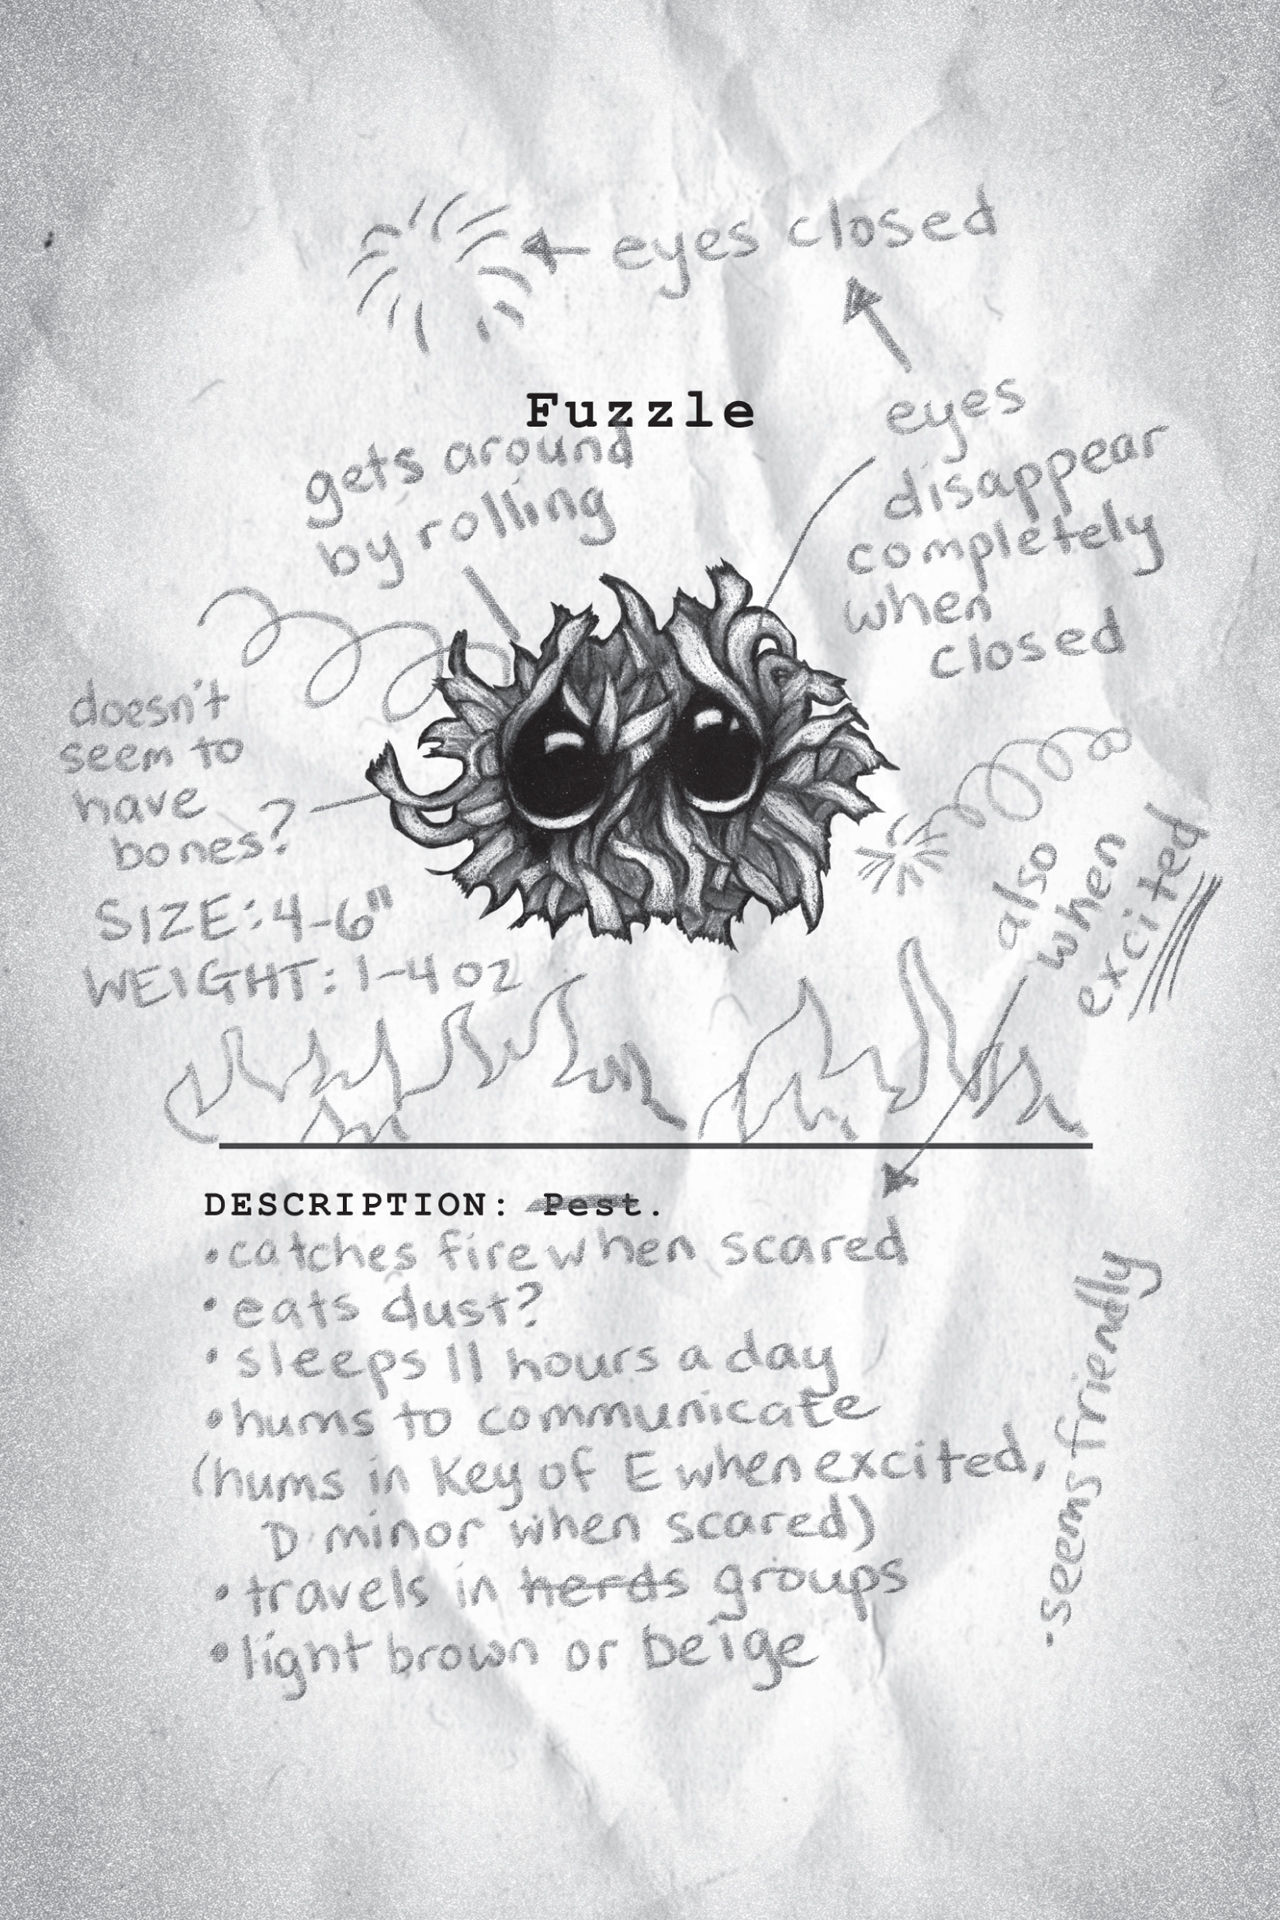 eyes closed
Fuzzle
gets around
by rolling
eyes
disappear
completely
when
closed
doesn't
seem to
have
bones?
SIZE: 4-6"
WEIGHT: 1-4 oz
also
when
excited
DESCRIPTION: Pest.
•catches fire when scared
•eats dust?
•sleeps 11 hours a day
•hums to communicate
(hums in Key of E when excited,
D minor when scared)
•travels in herds groups
•light brown or beige
•seems friendly